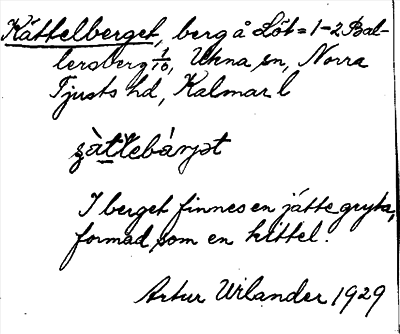 Kättelberget, berg å Löt = 1-2 Bal-
lersberg 1/10, Ukna sn, Norra
Tjusts hd, Kalmar l
I berget finnes en jättegryta,
formad som en kittel.
Artur Wilander 1929